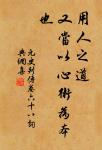 用人之道
又當以心術為本
也
元史列傳卷六十八
典網集